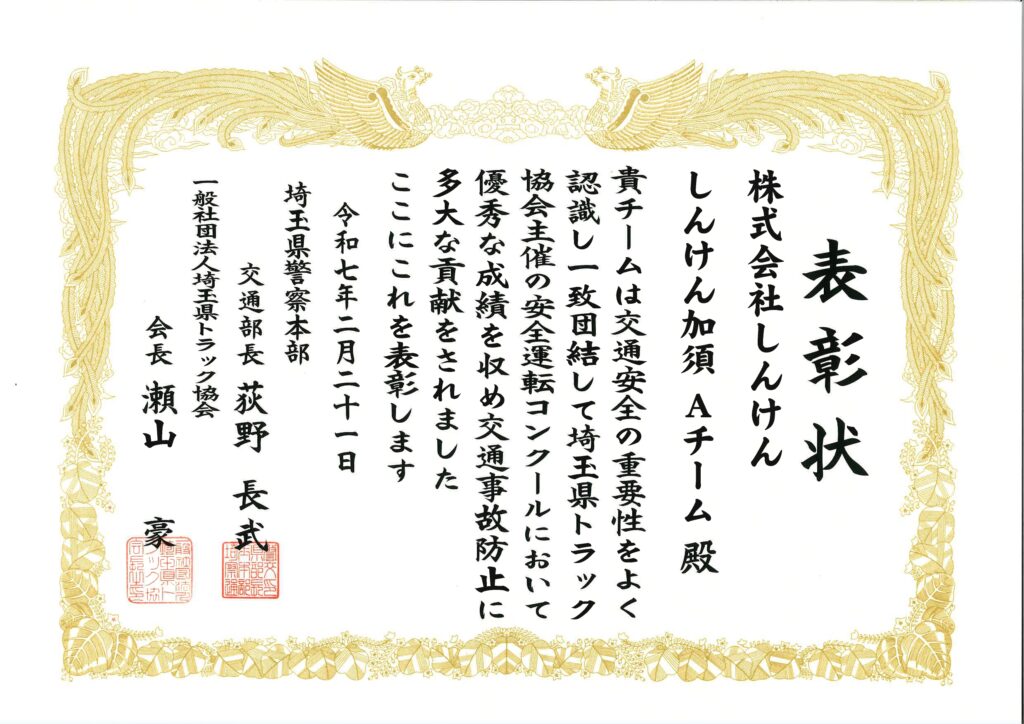 表彰状
株式会社しんけん
しんけん加須 Aチーム 殿
貴チームは交通安全の重要性をよく
認識し一致団結して埼玉県トラック
協会主催の安全運転コンクールにおいて
優秀な成績を収め交通事故防止に
多大な貢献をされました
ここにこれを表彰します
令和七年二月二十一日
埼玉県警察本部
交通部長 荻野 長武
一般社団法人埼玉県トラック協会
会長 瀬山 豪